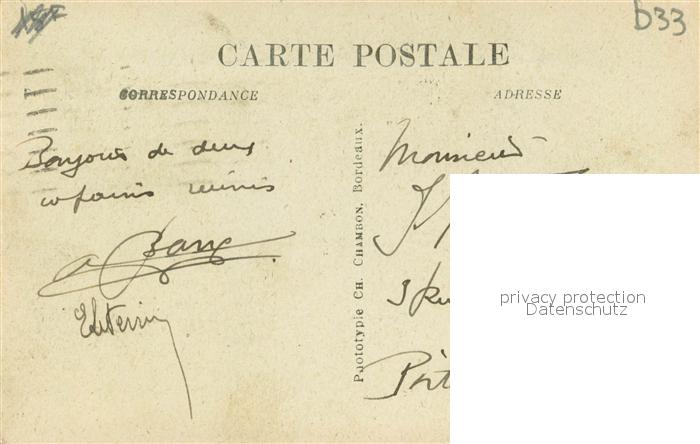 b33
CARTE POSTALE
CORRESPONDANCE
ADRESSE
Bonjour de deux
copains réunis
Phototypie CH. CHAMBON, Bordeaux.
Monsieur
3 Ru
privacy protection
Datenschutz